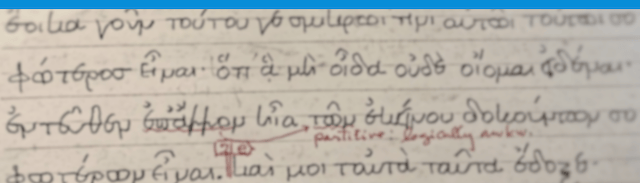 ἔοικα γοῦν τούτου γε σμικρῷ τινι αὐτῷ τούτῳ σο
φώτερος εἶναι· ὅτι ἃ μὴ οἶδα οὐδὲ οἴομαι εἰδέναι·
ἐντεῦθεν ἐπ' ἄλλον ᾖα τῶν ἐκείνου δοκούντων σο
partitive: logically awkw.
φωτέρων εἶναι. καί μοι ταὐτὰ ταῦτα ἔδοξε·